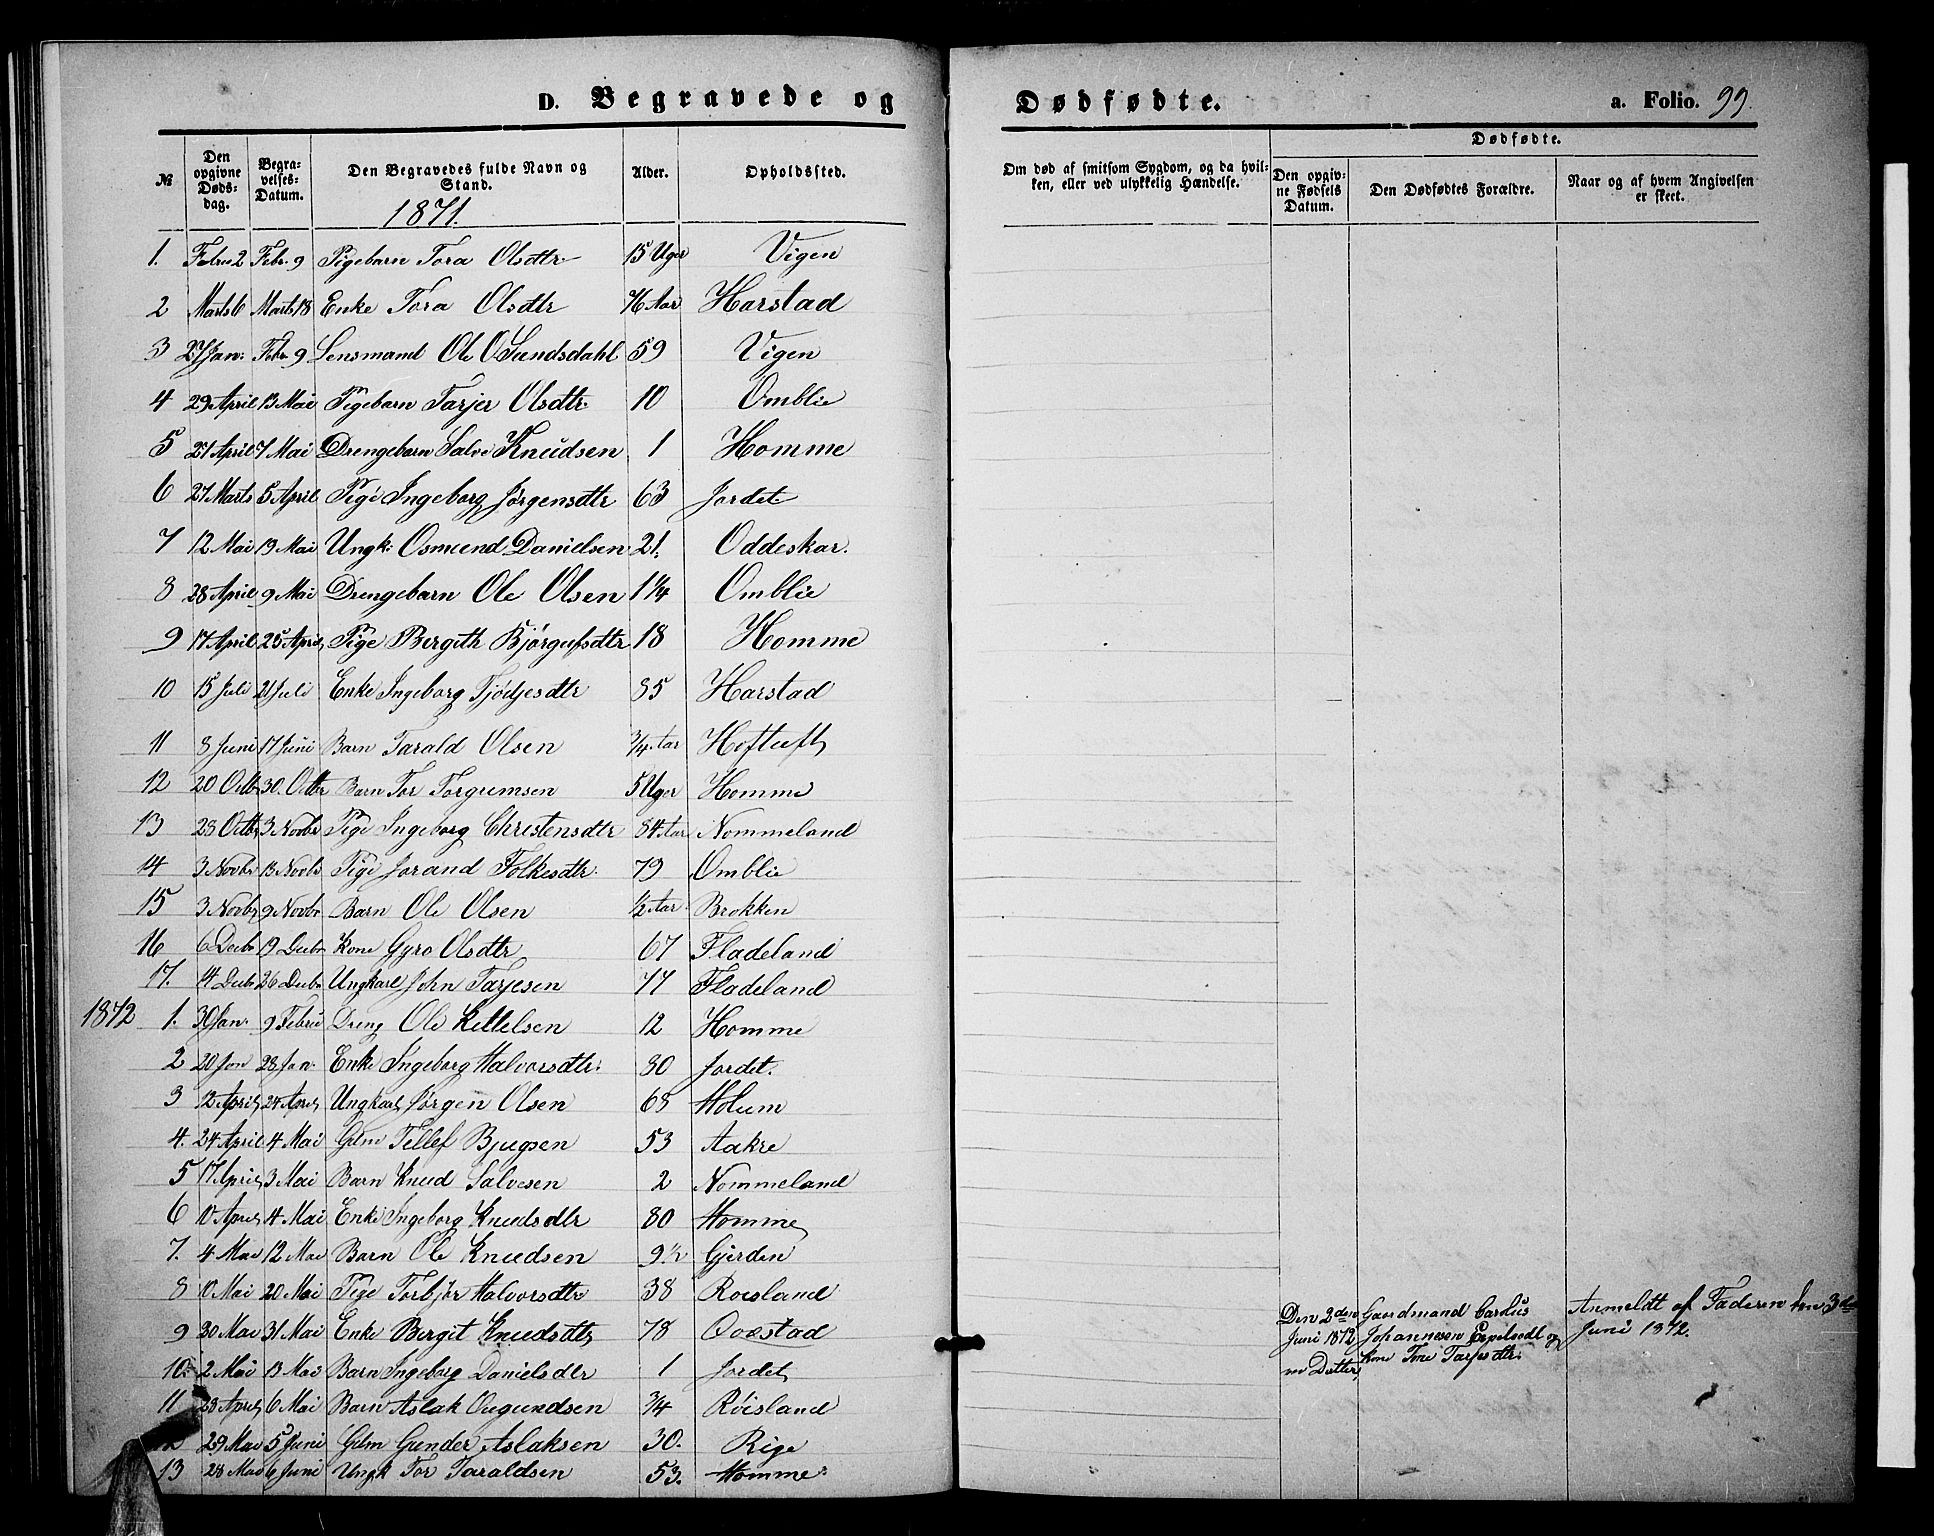 D. Begravede og Dødfødte. a. Folio. 99.
№ Den opgivne Døds-dag. Begra-velses-Datum. Den Begravedes fulde Navn og Stand. Alder. Opholdssted. Om død af smitsom Sygdom, og da hvil-ken, eller ved ulykkelig Hændelse. Dødfødte. Den opgiv-ne Fødsels Datum. Den Dødfødtes Forældre. Naar og af hvem Angivelsen er skeet.
1871.
1. Febru 2 Febr. 9 Pigebarn Tora Olsdtr 15 Uger Vigen
2 Marts 6 Marts 18 Enke Tora Olsdtr 76 Aar Harstad
3 27 Jan: Febr. 9 Lensmand Ole O Sundsdahl 59 Vigen
4 29 April 13 Mai Pigebarn Tarjer Olsdtr. 10 Omblie
5 27 April 7 Mai Drengebarn Salve Knudsen 1 Homme
6 27 Marts 5 April Pige Ingeborg Jørgensdtr 63 Jordet
7 12 Mai 19 Mai Ungk: Osmund Danielsen 21. Oddeskar.
8 28 April 9 Mai Drengebarn Ole Olsen 1 1/4 Omblie
9 17 April 25 April Pige Bergith Bjørgufsdtr 18 Homme
10 15 Juli 21 Juli Enke Ingeborg Tjødjesdtr 85 Harstad
11 8 Juni 17 Juni Barn Tarald Olsen 3/4 Aar Hoftuft
12 20 Octbr 30. Octbr Barn Tor Torgrimsen 5 Uger Homme
13 23 Octbr 3 Novbr Pige Ingeborg Christensdtr 84 Aar Nommeland
14 3 Novbr 13 Novbr Pige Jorand Folkesdtr. 79 Omblie
15 3 Novbr 9 Novbr Barn Ole Olsen 1/2 Aar. Brokken
16 6 Decbr 19 Decbr Kone Gyro Olsdtr 67 Fladeland
17. 14 Decbr 26 Decbr Ungkarl John Tarjesen 77 Fladeland
1872 1. 30 Jan. 9 Febru Dreng Ole Kittelsen 12 Homme
2 20 Jan 28 Jan. Enke Ingeborg Halvorsdtr. 80 Jordet.
3 12 April 24 April Ungkarl Jørgen Olsen 68 Holum
4. 24 April 4 Mai Gdm Tellef Bjugsen 53 Aakre
5 17 April 3 Mai Barn Knud Salvesen 2 Nommeland
6 10 April 4 Mai Enke Ingeborg Knudsdtr 80 Homme
7. 4 Mai 12 Mai Barn Ole Knudsen 9 1/2 Gjerden
8 10 Mai 20 Mai Pige Torbjør Halvorsdtr 38 Roisland
9 30 Mai 31 Mai Enke Bergit Knudsdtr 78 Qvæstad
10. 2 Mai 13 Mai Barn Ingeborg Danielsdtr 1 Jordet
11 28 April 6 Mai Barn Aslak Augundsen 3/4 Røisland
12 29 Mai 5 Juni Gdm Gunder Aslaksen 30. Rige
13 28 Mai 6 Juni Ungk Tor Taraldsen 53. Homme
Den 2den Gaardmand Carolus Anmeldt af Faderen den 3de
Juni 1872 Johannesen og Juni 1872.
Datter, Kone Tone Tarjesdtr.